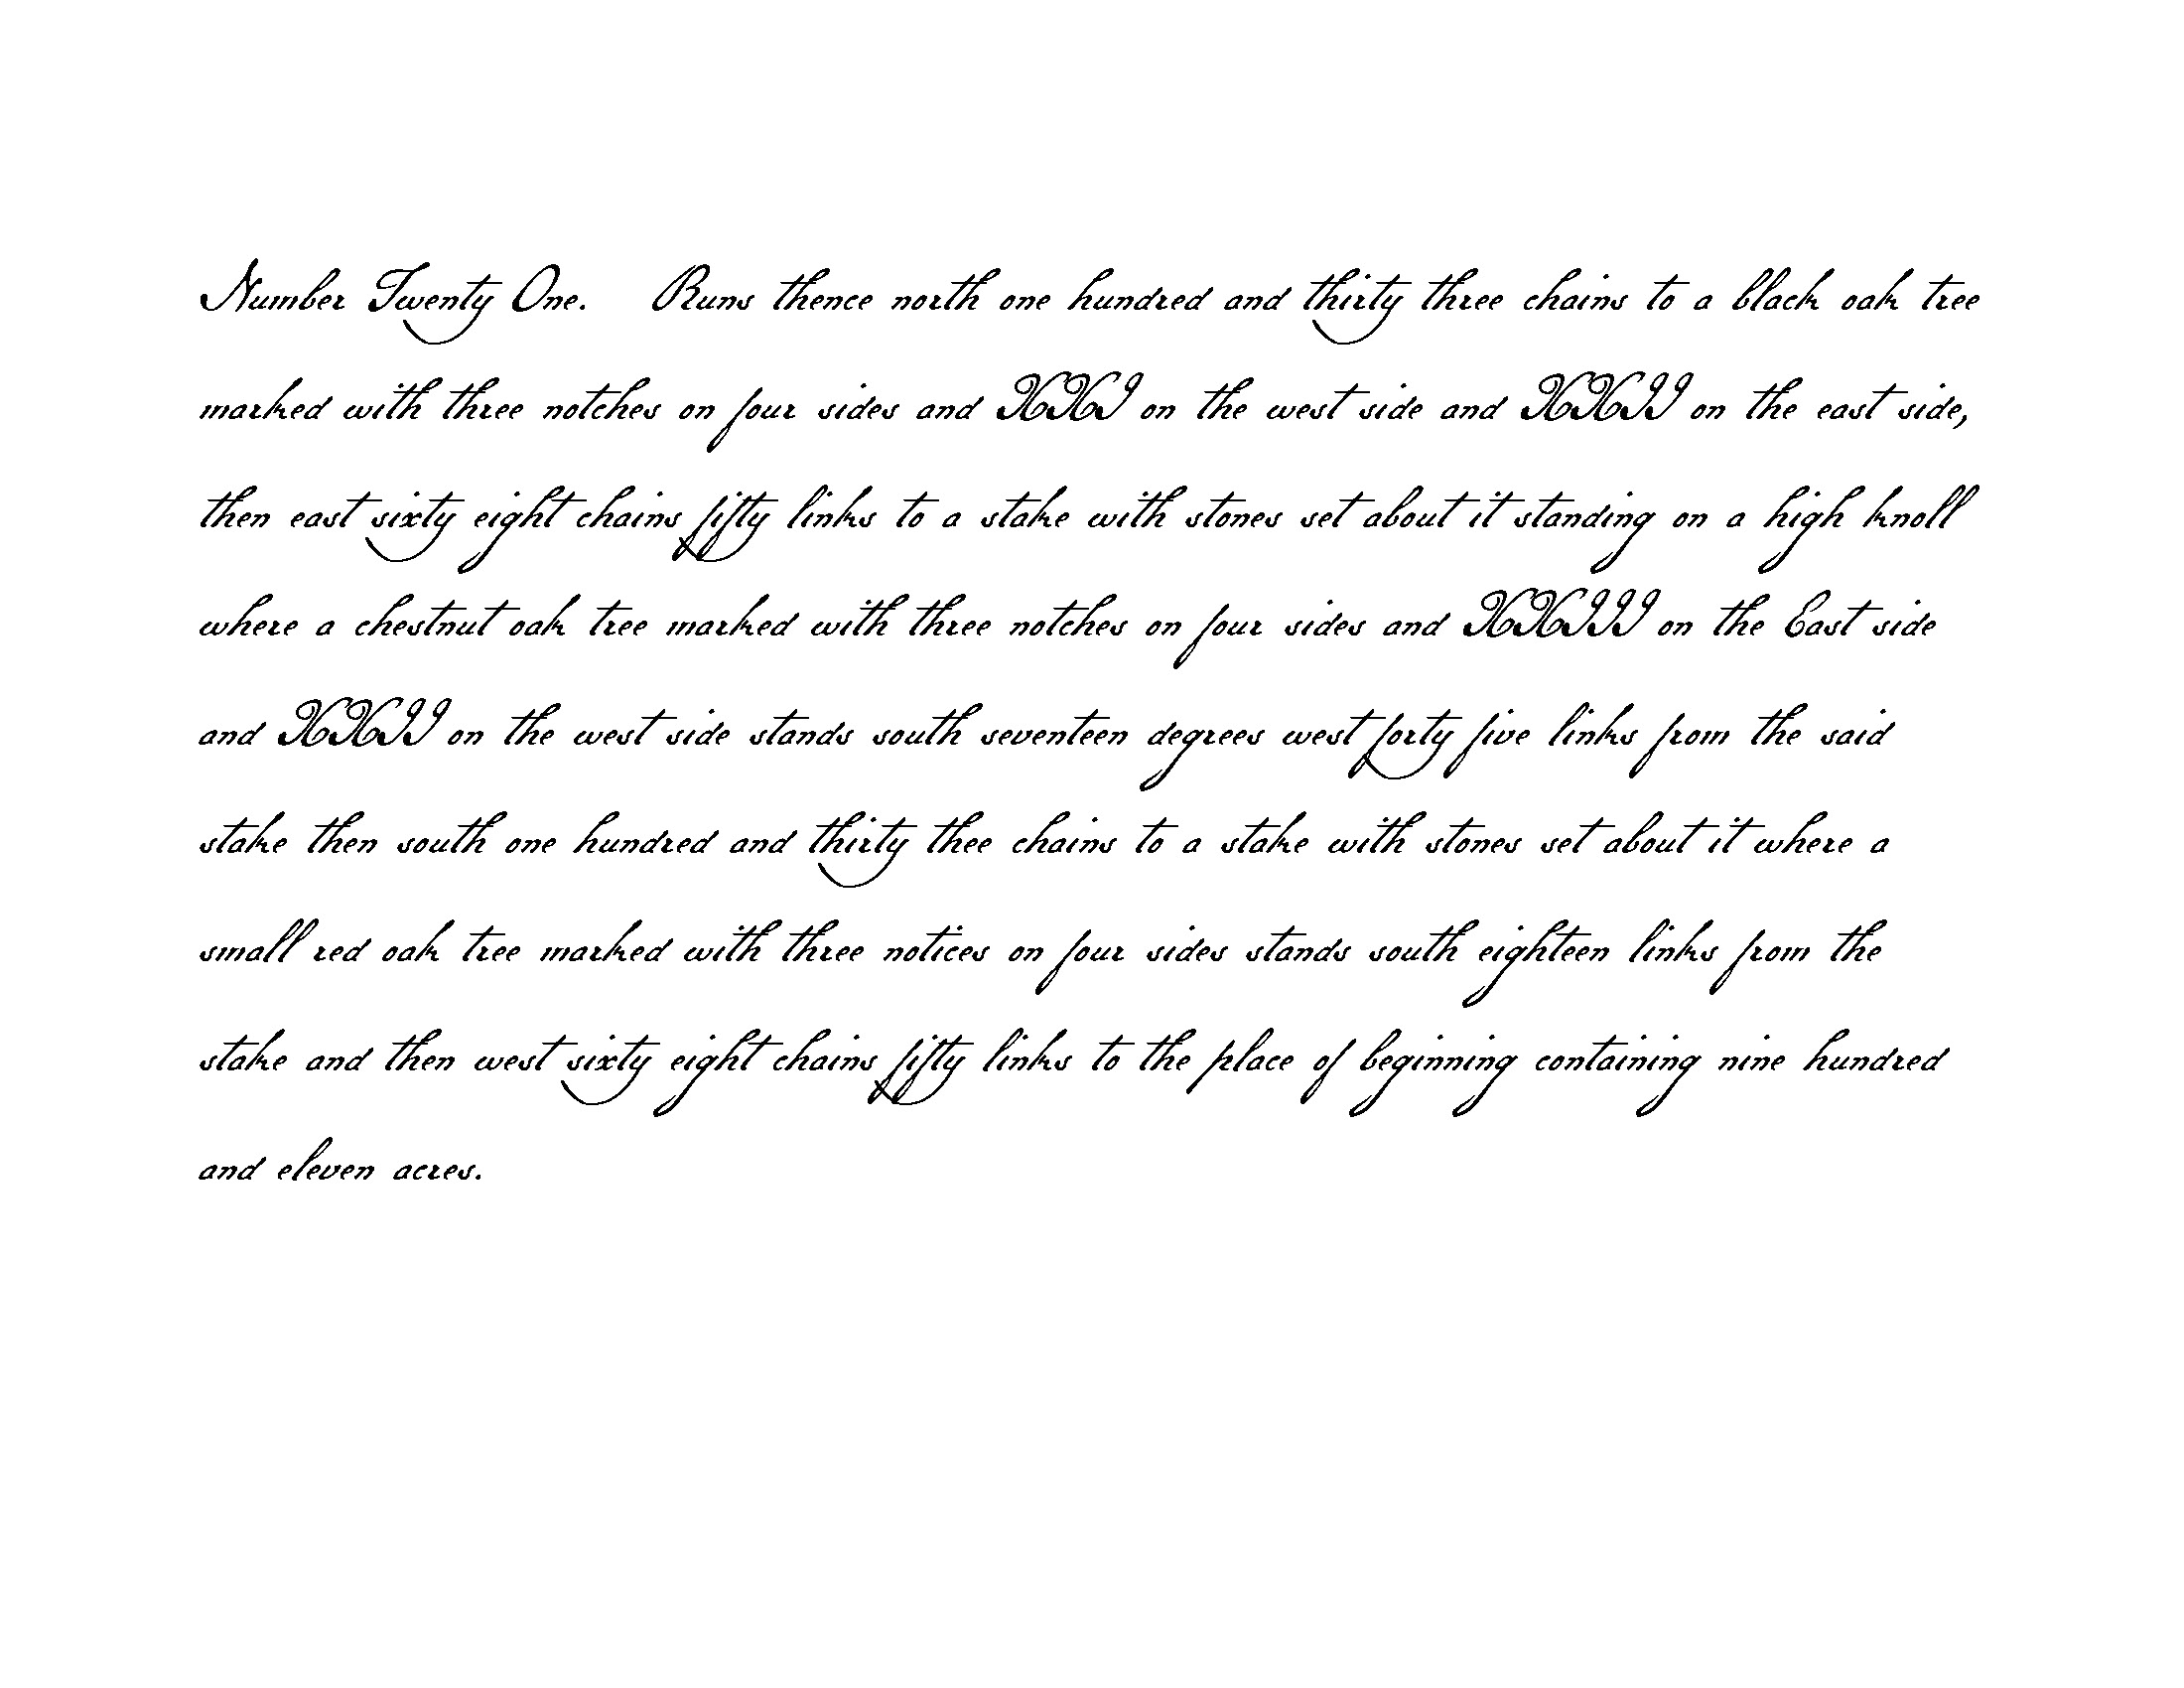 Number Twenty One. Runs thence north one hundred and thirty three chains to a black oak tree
marked with three notches on four sides and XXI on the west side and XXII on the east side,
then east sixty eight chains fifty links to a stake with stones set about it standing on a high knoll
where a chestnut oak tree marked with three notches on four sides and XXIII on the East side
and XXII on the west side stands south seventeen degrees west forty five links from the said
stake then south one hundred and thirty thee chains to a stake with stones set about it where a
small red oak tree marked with three notices on four sides stands south eighteen links from the
stake and then west sixty eight chains fifty links to the place of beginning containing nine hundred
and eleven acres.